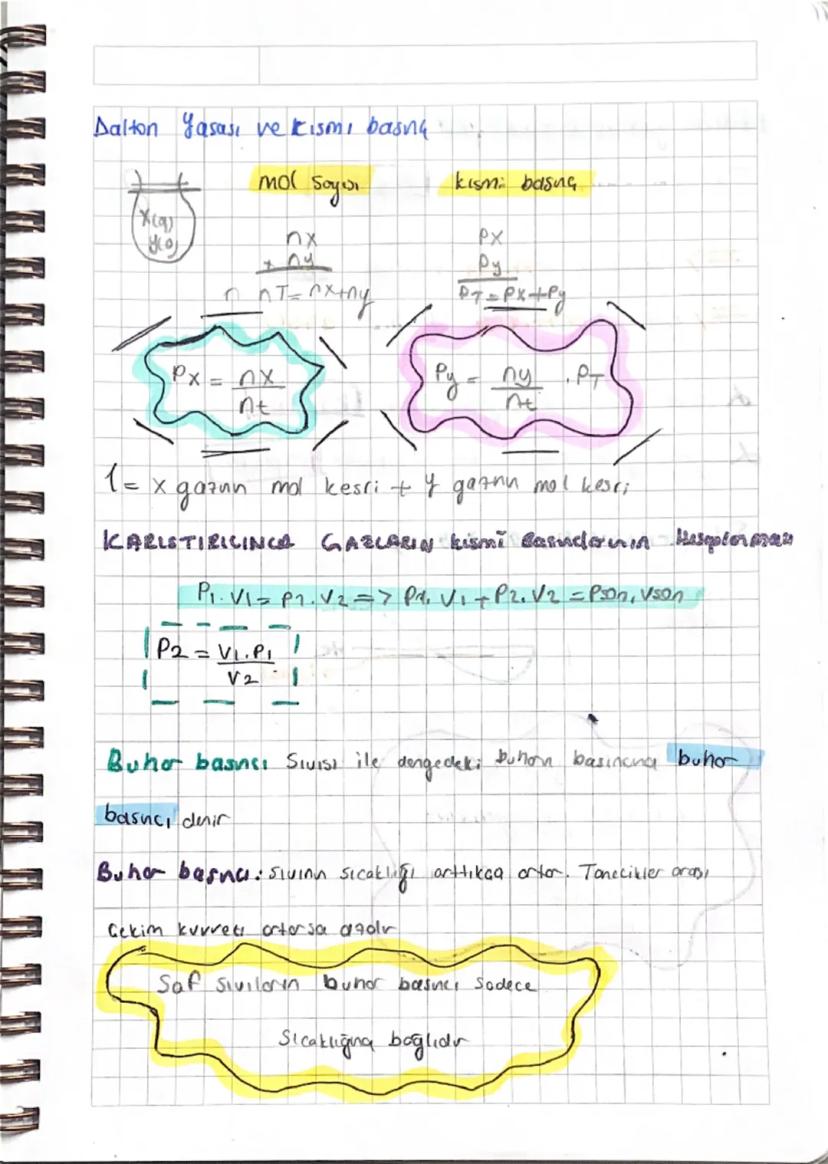 Dalton Yasası ve kısmı basınç
mol sayısı kısmi basınç
X(g)
Y(g)
nx
+ ny
n nT = nx+ny
Px
Py
PT = Px + Py
Px = nx / nt
Py = ny / nt . PT
1 = x gazının mol kesri + y gazının mol kesri
KARIŞTIRILINCA GAZLARIN kısmi Basınçlarının Hesaplanması
P1.V1 = P2.V2 => P1.V1 + P2.V2 = Pson.Vson
P2 = V1.P1 / V2
Buhar basıncı Sıvısı ile dengedeki buharın basıncına buhar
basıncı denir
Buhar basıncı: sıvının sıcaklığı arttıkça artar. Tanecikler arası
çekim kuvveti artarsa azalır
Saf sıvıların buhar basıncı sadece
Sıcaklığına bağlıdır